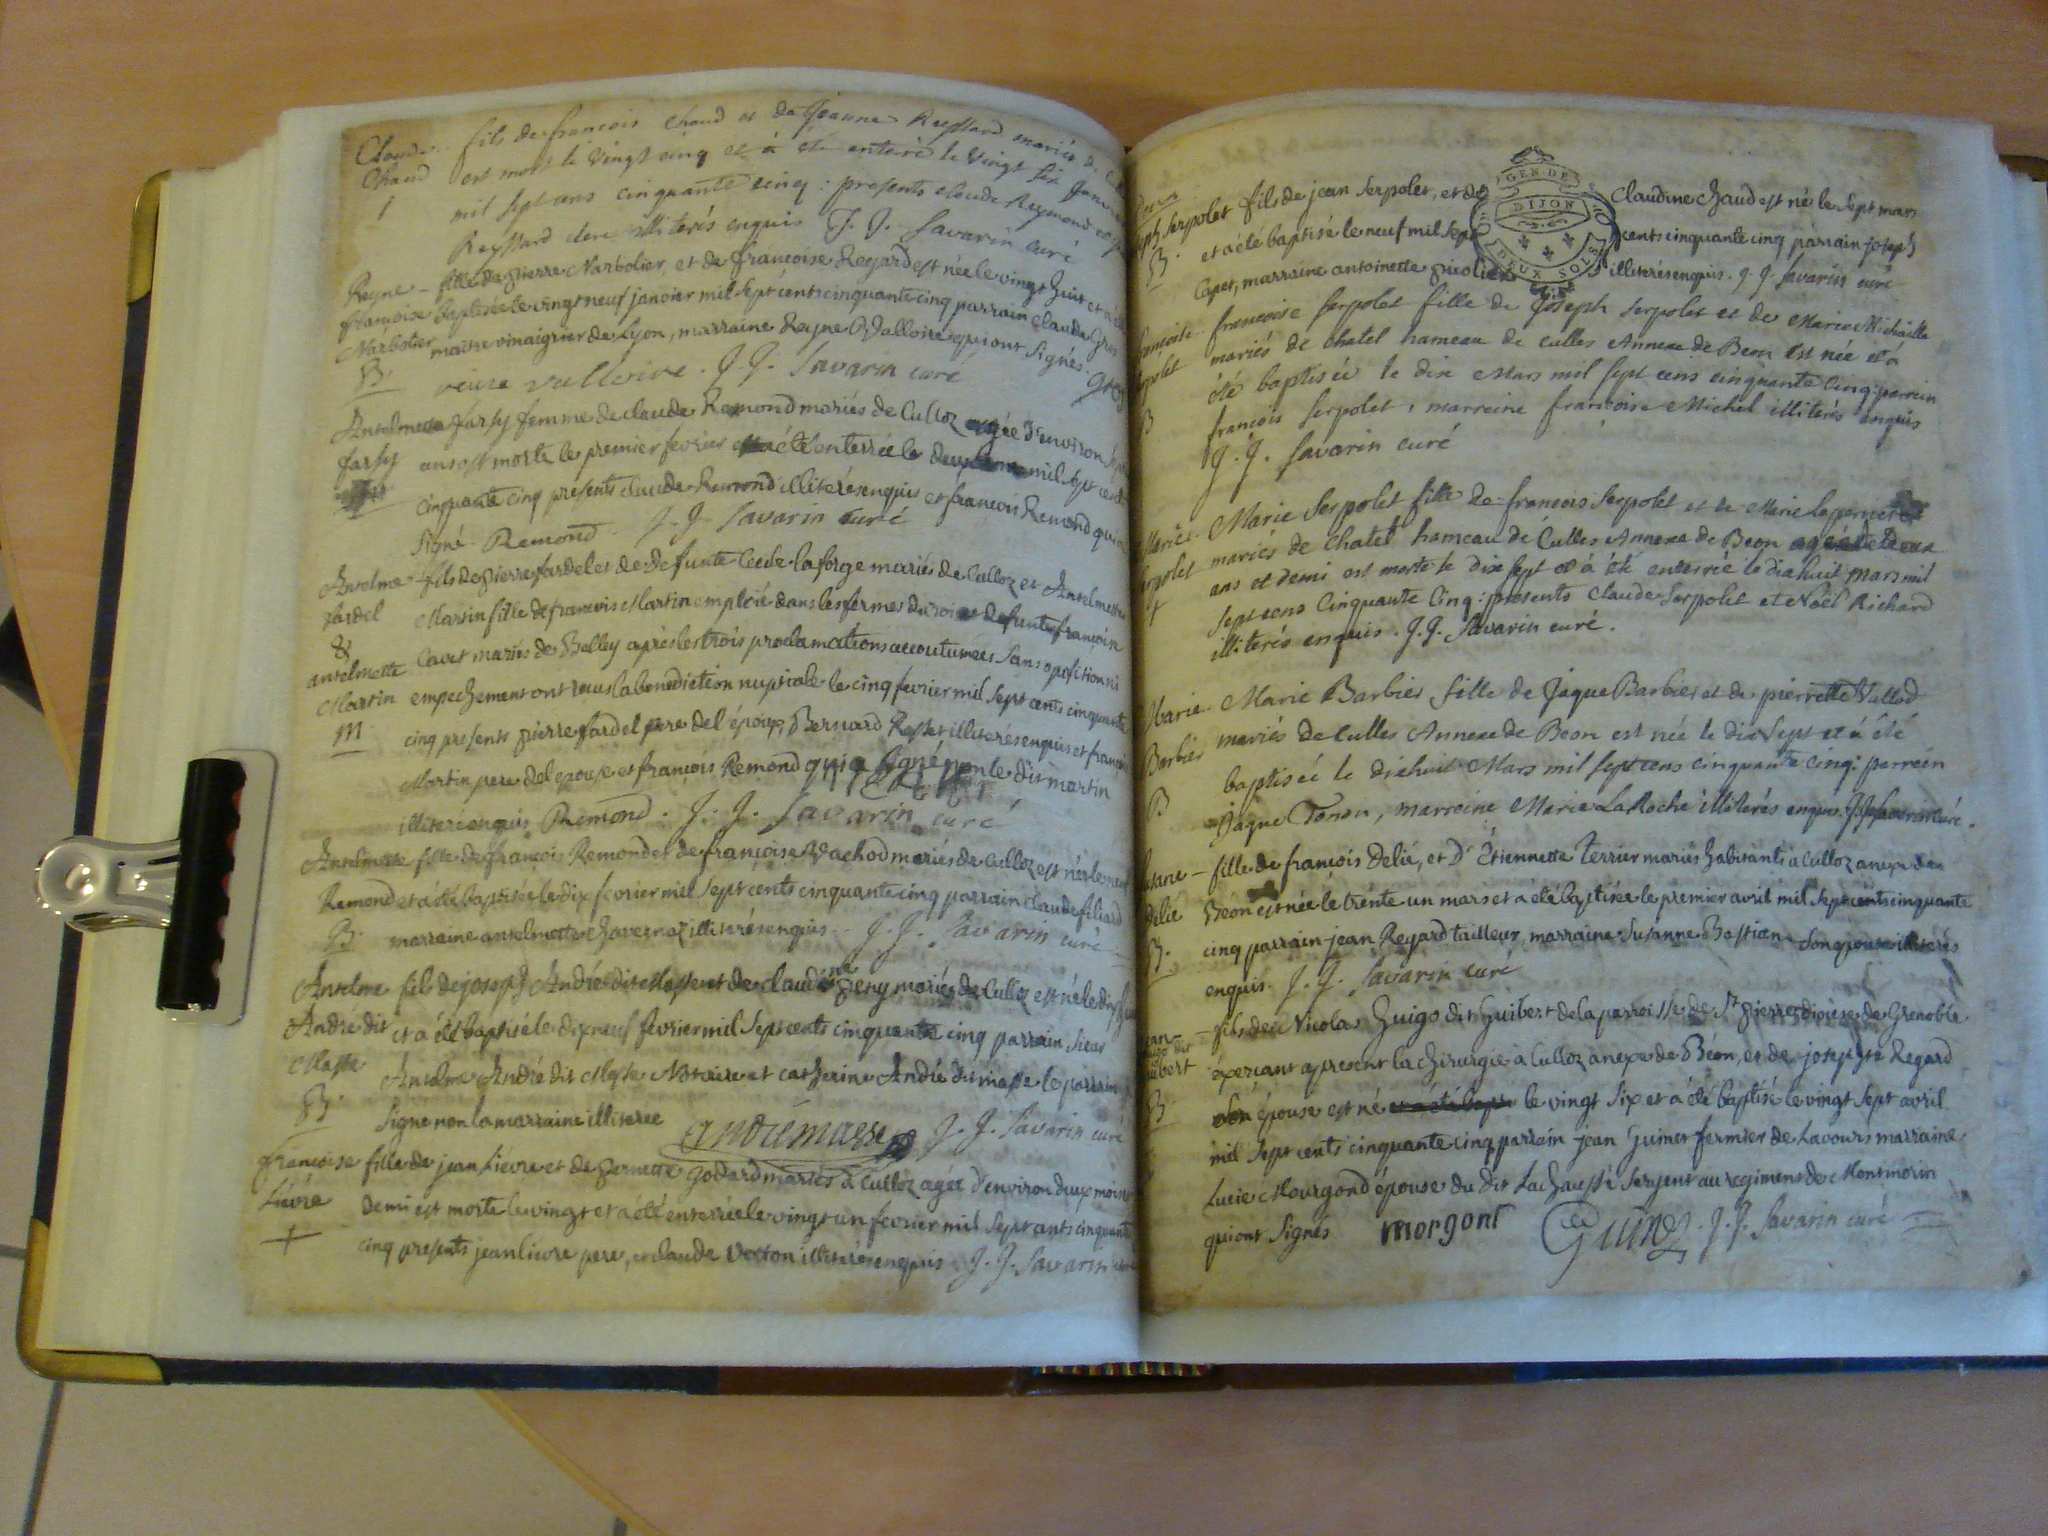 Claude fils de francois Chaud et de Jeanne Reyssard mariés de
Chaud est mort le vingt cinq et à été enteré le vingt six
mil sept cens cinquante cinq : presents claude Reymond et
Reyssard illiterés enquis J. J. Savarin curé
Reyne fille de pierre Narbolier, et de francoise Regard est née le vingt huit et a été
francoise baptisée le vingt neuf janvier mil sept cents cinquante cinq parrain claude Gros
Narbolier maitre vinaigrier de Lyon, marraine Reyne Valloire qui ont signés. gros
B. J. J. Savarin curé
Anselmette farsy femme de claude Remond mariés de Culloz agée d'environ
farsy ans est morte le premier fevrier et a été enterrée le mil sept cents
cinquante cinq presents claude Remond illiterés enquis et francois Remond qui a
signé Remond J. J. Savarin curé
Anselme fils de pierre fardel et de defunte laforge mariés de Culloz et Anselmette
fardel Martin fille de francois Martin emploié dans les fermes du roi et defunte francoise
& Cavet mariés de Belley après les trois proclamations accoutumées sans oposition ni
anselmette
Martin empechement ont reçus la benediction nuptiale le cinq fevrier mil sept cents cinquante
M cinq presents pierre fardel pere de l'époux, Bernard illiterés enquis et francois
Martin pere de l'epouse et francois Remond qui a signé non le dit martin
illiteré enquis Remond. J. J. Savarin curé
Anselmette fille de francois Remond et de francoise Vachod mariés de Culloz est née le neuf
Remond et a été baptisée le dix fevrier mil sept cents cinquante cinq parrain claude filiard
B. marraine anselmette illiterés enquis J. J. Savarin curé
Anselme fils de joseph André dit Masse et de claudine mariés de Culloz est né le dix
André dit et a été baptisé le dix neuf fevrier mil sept cents cinquante cinq parrain sieur
Masse Anselme André dit Masse Notaire et catherine André dit masse le parrain
B. signé non la marraine illiterée andremasse J. J. Savarin curé
francoise fille de jean Lièvre et de pernette godard mariés à Culloz agée d'environ deux mois
Lièvre demi est morte le vingt et a été enterrée le vingt un fevrier mil sept cents cinquante
+ cinq presents jean lievre pere, et claude illiterés enquis J. J. Savarin curé
Serpolet fils de jean Serpolet, et de Claudine Chaud est né le sept mars
B. et a été baptisé le neuf mil sept cents cinquante cinq parrain joseph
Capet, marraine antoinette illiterés enquis. J. J. Savarin curé
GEN DE
DIJON
DEUX SOLS
francoise Serpolet fille de Joseph Serpolet et de Marie Michaille
mariés de chatel hameau de culles Annexe de Beon est née et à
été baptisée le dix Mars mil sept cens cinquante cinq: perrein
B francois Serpolet, marreine francoise Michel illiterés enquis
J. J. Savarin curé
Marie Serpolet fille de francois Serpolet et de Marie
Serpolet mariés de chatel hameau de Culles Annexe de Beon agée de deux
ans et demi est morte le dix sept et à été enterrée le dixhuit Mars mil
sept cens Cinquante Cinq: presents Claude Serpolet et Noël Richard
illiterés enquis. J. J. Savarin curé.
Marie Marie Barbier fille de Jaque Barbier et de pierrette Vullod
Barbier mariés de Culles Annexe de Beon est née le dix Sept et à été
baptisée le dixhuit Mars mil sept cens cinquante cinq: perrein
B. Jaque Tonon, marreine Marie LaRoche illiterés enquis. JJ Savarin curé.
fille de francois Delié, et D' Étiennette Terrier mariés habitants à Culloz anexe de
Delié Béon est née le trente un mars et a été baptisée le premier avril mil sept cents cinquante
B. cinq parrain jean Regard tailleur, marraine Susanne Bastian son epouse illiterés
enquis. J. J. Savarin curé
fils de Nicolas Guigo dit Guibert de la parroisse de St pierre diocèse de Grenoble
exercant a present la chirurgie à Culloz anexe de Béon, et de josephte Regard
B. son épouse est né le vingt six et a été baptisé le vingt sept avril
mil sept cents cinquante cinq parrain jean Guinet fermier de Lavours marraine
Lucie Mourgond épouse du dit Lachaussé sergent au regiment de Montmorin
qui ont signés morgont Guinet J. J. Savarin curé